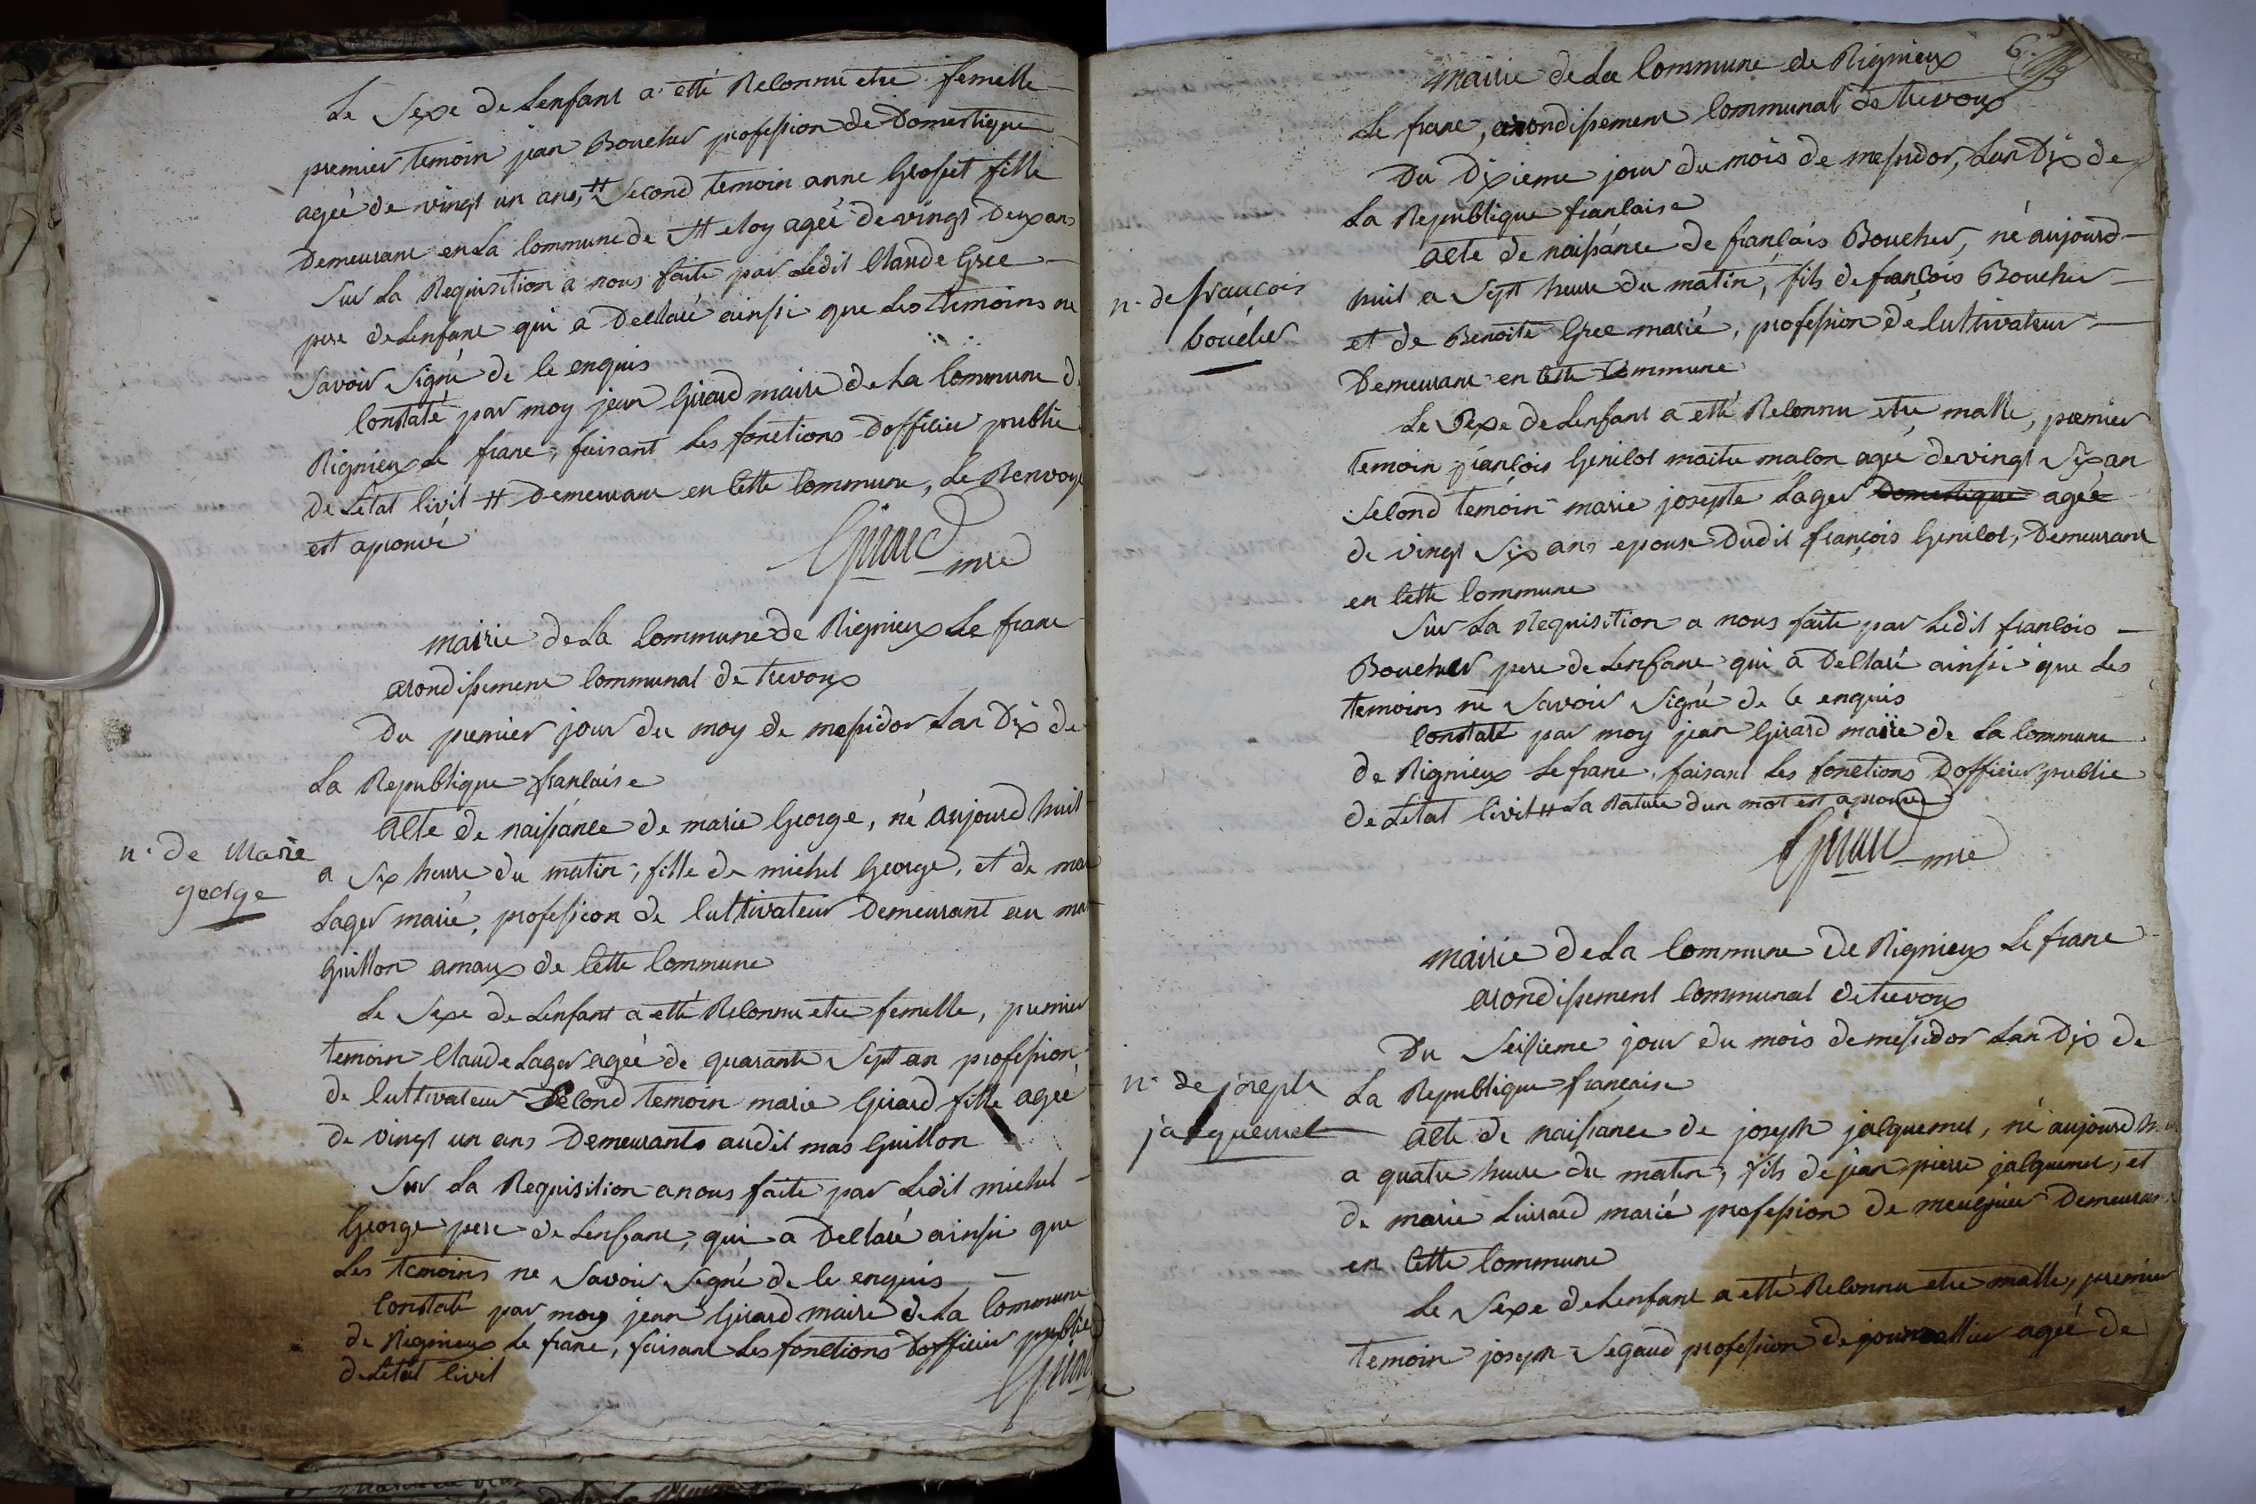 Le Sexe de Lenfant a etté Reconnu etre femelle
premier temoin jean Boucher profession de Domestique
ageé de vingt un ans, # Second temoin anne Grosset fille
Demeurant en La Commune de St eloy ageé de vingt Deux ans
Sur La Requisition a nous faite par Ledit Claude Gree
pere de Lenfant qui a Declaré ainsi que Les temoins ne
Savoir Signé de ce enquis
Constaté par moy jean Girard maire de La Commune de
Rignieux Le franc, faisant Les fonctions Dofficier public
De Létat Civil # Demeurant en Cette Commune, Le Renvoye
est aprouvé
Girard mre
mairie de La Commune de Rignieux Le franc
arondissement Communal de trevoux
Du premier jour du moy de messidor Lan Dix de
La Republique francaise
n. de Marie
george
acte de naissance de marie George, né aujourd huit
a Six heure du matin, fille de michel George, et de
Lager marié, profession de Cultivateur Demeurant au mas
Guillon amaux de Cette Commune
Le Sexe de Lenfant a etté Reconnu etre femelle, premier
temoin Claude Lager ageé de quarante Sept an profession
de Cultivateur Second temoin marie Girard fille ageé
de vingt un ans Demeurants audit mas Guillon
Sur La Requisition a nous faite par Ledit michel
George pere de Lenfant, qui a Declaré ainsi que
Les temoins ne Savoir Signé de ce enquis
Constaté par moy jean Girard maire de La Commune
de Rignieux Le franc, faisant Les fonctions Dofficier public
de Létat Civil
Girard
6
mairie de La Commune de Rignieux
Le franc, arondissement Communal de trevoux
Du Dixieme jour du mois de messidor, Lan Dix de
La Republique francaise
n. de francois
boucher
acte de naissance de francois Boucher, né aujourd-
huit a Sept heure du matin, fils de francois Boucher
et de Benoite Gree marié, profession de Cultivateur
Demeurant en Cette Commune
Le Sexe de Lenfant a etté Reconnu etre malle, premier
temoin françois Genilot maitre macon ageé de vingt Six an
Second temoin marie josepte Lager Domestique ageé
de vingt Six ans epouse Dudit françois Genilot, Demeurant
en Cette Commune
Sur La Requisition a nous faite par Ledit francois
Boucher pere de Lenfant qui a Declaré ainsi que Les
temoins ne Savoir Signé de ce enquis
Constaté par moy jean Girard maire de La Commune
de Rignieux Le franc, faisant Les fonctions Dofficier public
de Létat Civil # La Rature dun mot est aprouvé
Girard mre
mairie de La Commune de Rignieux Le franc
arondissement Communal de trevoux
Du Seisieme jour du mois de messidor Lan Dix de
La Republique francaise
n. de joseph
jacquemet
acte de naissance de joseph jacquemet, né aujourd
a quatre heure du matin, fils de jean pierre jacquemet, et
de marie marié profession de meugnier Demeurant
en Cette Commune
Le Sexe de Lenfant a etté Reconnu etre malle, premier
temoin joseph Segaud profession de journallier ageé de